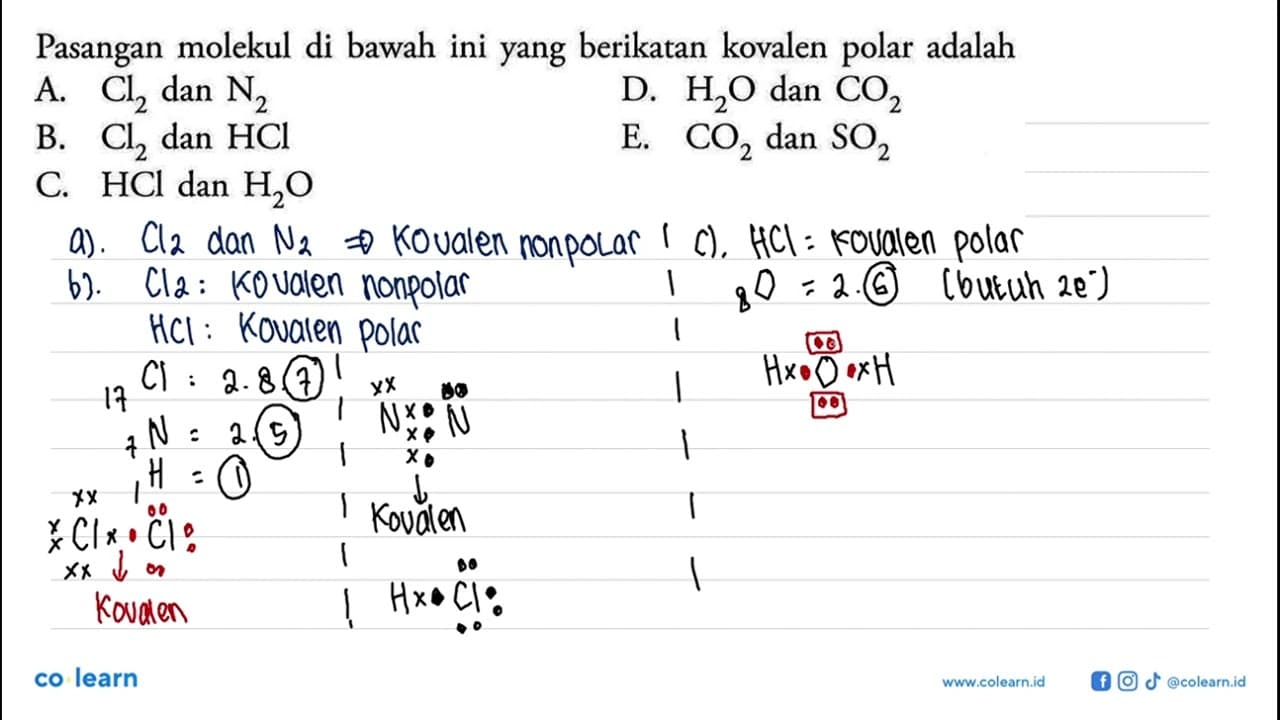 Pasangan molekul di bawah ini yang berikatan kovalen polar adalah
A. Cl₂ dan N₂
B. Cl₂ dan HCl
C. HCl dan H₂O
D. H₂O dan CO₂
E. CO₂ dan SO₂
a). Cl₂ dan N₂ ⇒ Kovalen nonpolar
b). Cl₂ : Kovalen nonpolar
HCl : Kovalen polar
₁₇Cl : 2.8.7
₇N = 2.5
₁H = 1
xx
x Cl x • Cl :
x
xx
↓
Kovalen
xx
N x • N
x •
x •
↓
Kovalen
H x • Cl :
c). HCl = kovalen polar
₈O = 2.6 (butuh 2e⁻)
H x • O • x H
co learn
www.colearn.id
@colearn.id